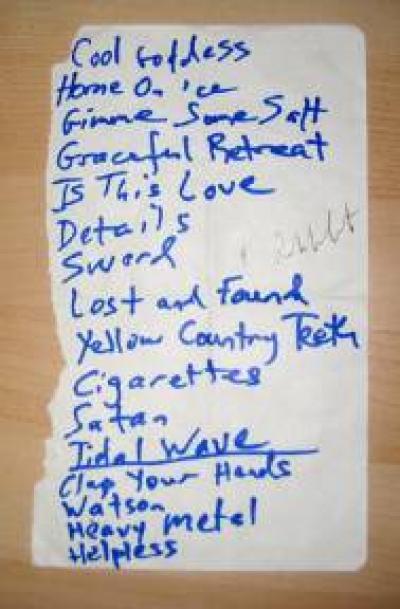 Cool Goddess
Home On ice
Gimme Some Salt
Graceful Retreat
Is This Love
Details
Sword
Lost and Found
Yellow Country Teeth
Cigarettes
Satan
Tidal Wave
Clap Your Hands
Watson
Heavy metal
Helpless